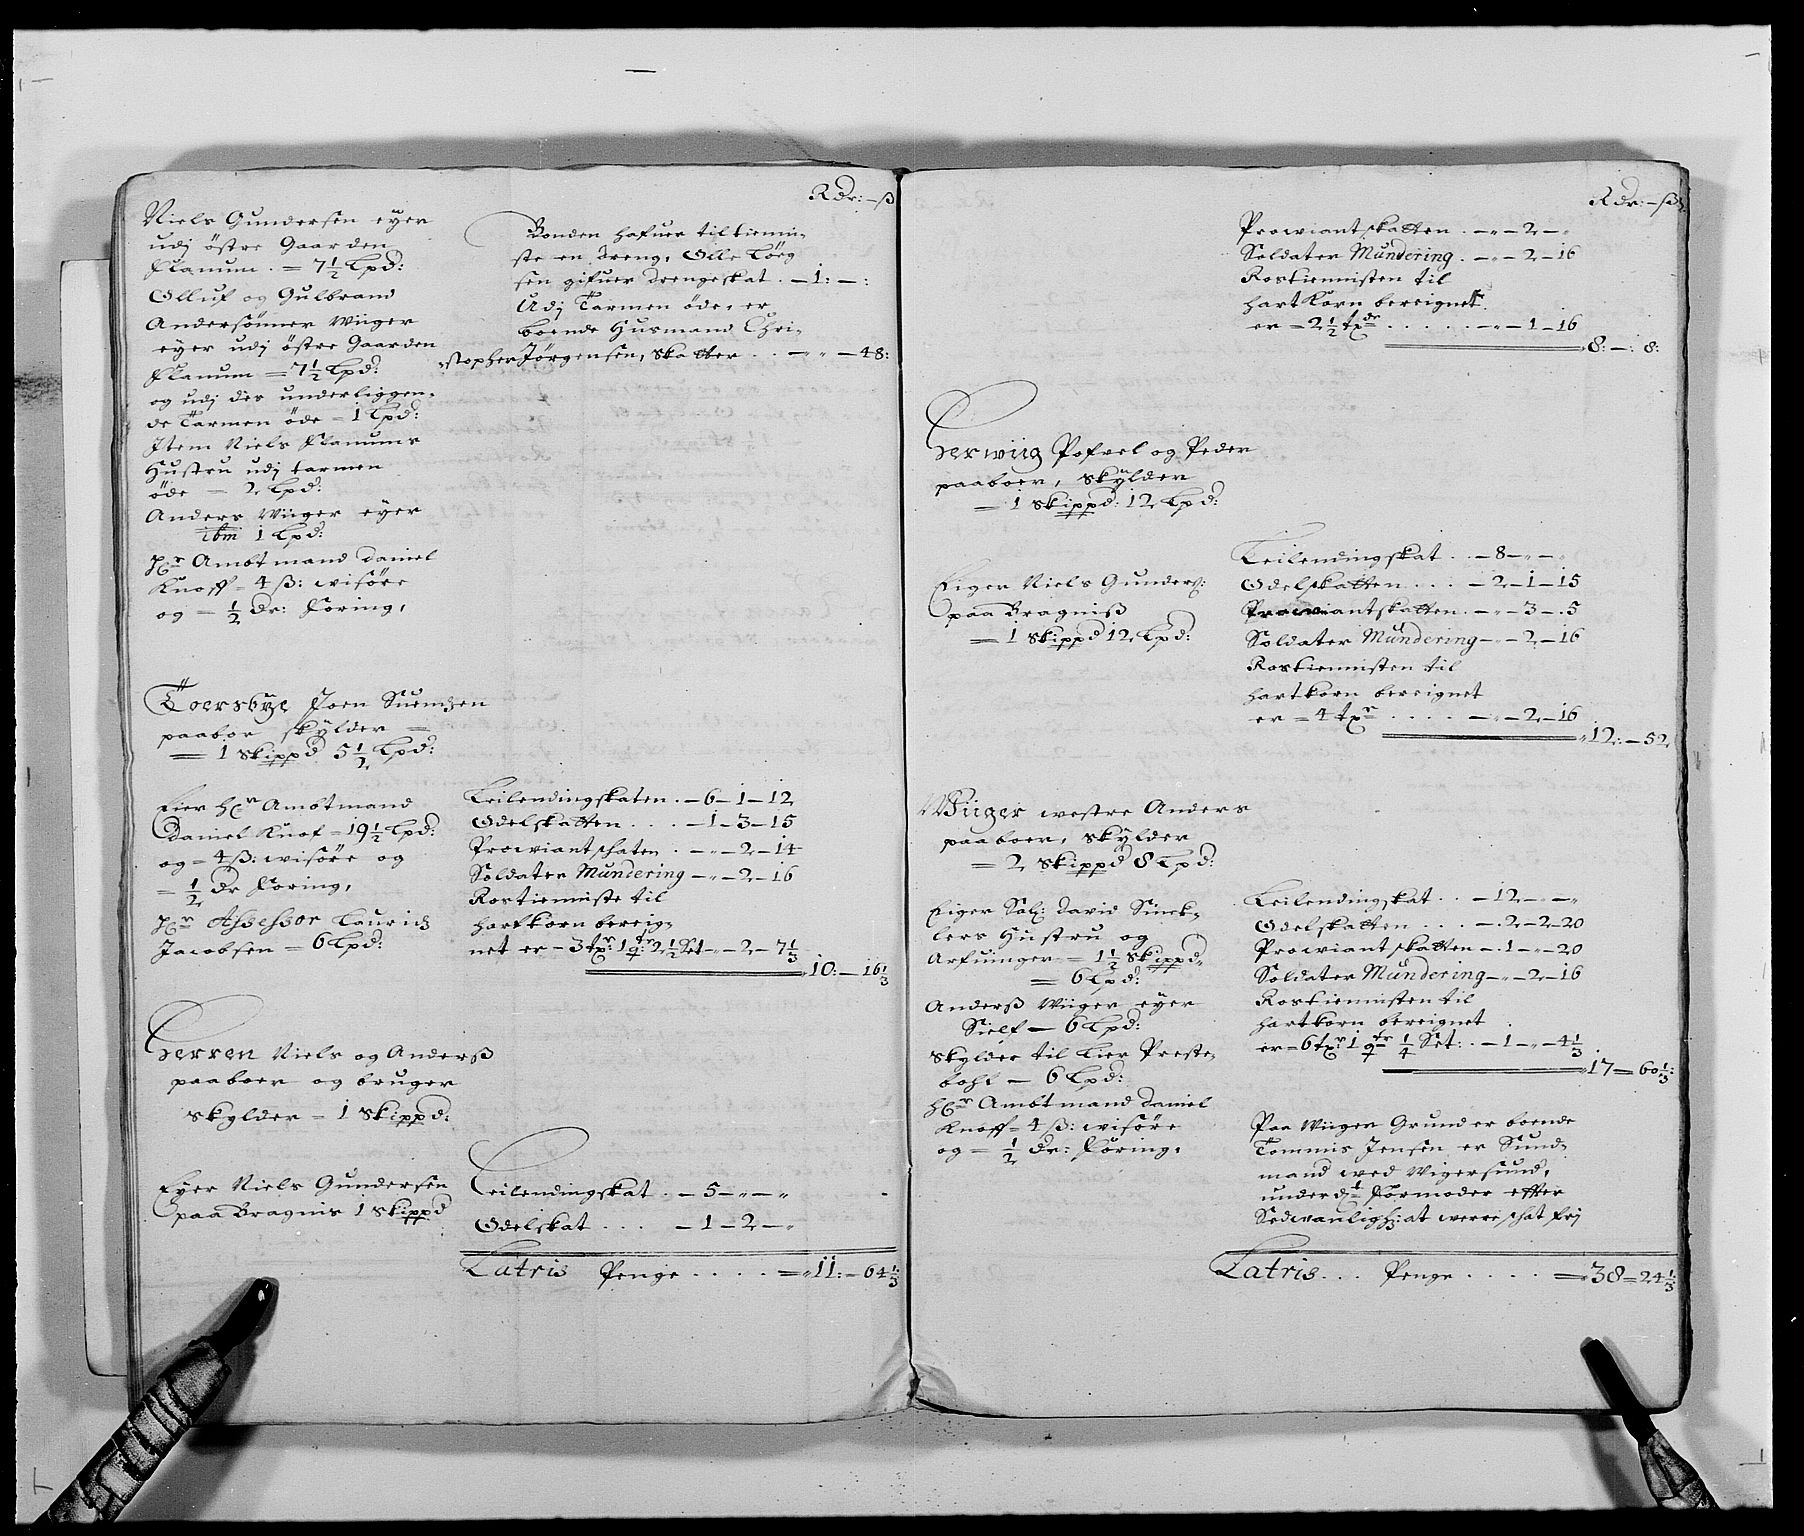 Rdr: – ß
Niels Gundersen eyer
udj östre Gaarden
Flanum. = 7½ Lpd:
Olluf og Gulbrand
Andersönner Wiiger
eyer udj östre Gaarden
Flanum = 7½ Lpd:
og udj des underliggen-
de Tarmen öde = 1 Lpd:
Item Niels Flanums
Hustru udj tarmen
öde — 2 Lpd:
Anders Wiiger eyer
ibm 1 Lpd:
Hr Ambtmand Daniel
Knoff = 4 ß: wisöre
og — ½ dr: Foring,
Bonden hafuer til tienni-
ste en Dreng, Olle Törg
sen gifuer drengeskat . – 1: – :
Udj Tarmen öde, er
boende Husmand Chri-
stopher Jörgensen, Skatter . . – „ – 48:
Toersbye Joen Suendzen
paaboer skylder =
= 1 Skippd 5½ Lpd:
Eier Hr Ambtmand
Daniel Knof = 19½ Lpd:
og = 4 ß: wisöre og
= ½ dr Foring,
Hr Assessor Lauridz
Jacobsen = 6 Lpd:
Leilendingskaten . – 6 – 1 – 12
Odelskatten . . . . – 1 – 3 – 15
Prowiantschaten . – „ – 2 – 14
Soldater Mundering – „ – 2 – 16
Rostienniste til
hartkorn bereig-
net er – 3 txr: 1 qtr 2½ Set – „ – 2 – 7⅓
10: – 16⅓
Herren Niels og Anderß
paaboer og bruger
skylder = 1 Skippd:
Eyer Niels Gundersen
paa Bragnis 1 Skippd
Leilendingskat . – 5 – „ – „
Odelskat . . . . – 1 – 2 – „
Latris Penge . . . . = 11: – 64⅓
Rdr: – ß
Prowiantskatten . – „ – 2 – „
Soldater Mundering . – „ – 2 – 16
Rostiennisten til
hartkorn bereignet
er = 2½ txdr . . . . . – „ – 1 – 16
8: – : 8:
Herwiig Pofvel og Peder
paaboer, skylder
= 1 Skippd: 12 Lpd:
Eiger Niels Gunders:
paa Bragniß
= 1 Skippd 12 Lpd:
Leilendingskat . . – 8 – „ – „
Odelskatten . . . – 2 – 1 – 15
Prowiantskatten . – „ – 3 – . 5
Soldater Mundering – „ – 2 – 16
Rostiennisten til
hartkorn bereignet
er = 4 txr . . . . – „ – 2 – 16
12: – 52
Wiiger westre Anders
paaboer, skylder
= 2 Skippd 8 Lpd:
Eiger Sal: David Sinck-
lers Hustru og
Arfuinger = 1½ Skippd
= 6 Lpd:
Anderß Wiiger eyer
Sielf — 6 Lpd:
Skylder til Lier Preste-
bohl — 6 Lpd:
Hr Ambtmand Daniel
Knoff = 4 ß: wisöre
og = ½ dr: Föring,
Leilendingskat . . – 12 – „ – „
Odelskatten . . . – 2 – 2 – 20
Prowiantskatten – . 1 – „ – 20
Soldater Mundering – „ – 2 – 16
Rostiennisten til
hartkorn bereignet
er = 6 txr 1 qtr ¼ Set: . – 1 – „ – 4⅓
17 = 60⅓
Paa Wiiger Grund er boende
Tommis Jensen er Sund-
mand wed Wigersund,
under dj Formoder effter
Sedwanligh: at were schat frj
Latris . . . Penge . . . . = 38 = 24⅓